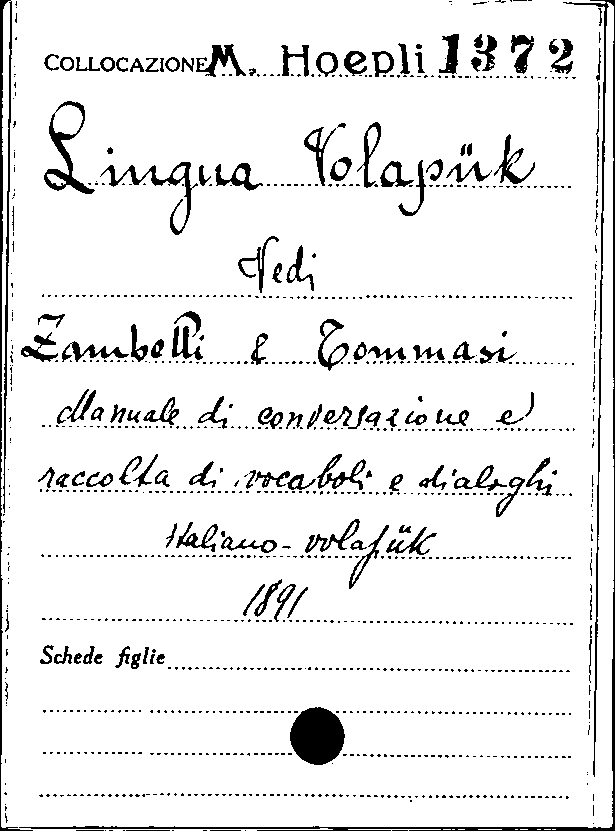 COLLOCAZIONE M. Hoepli 1372
Lingua Volapük
Vedi
Zambelli e Tommasi
Manuale di conversazione e
raccolta di vocaboli e dialoghi
Italiano-volapük
1891
Schede figlie